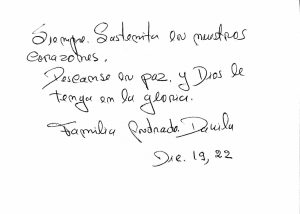 Siempre. Sastemita en nuestros
corazones.
Descanse en paz. y Dios le
tenga en la gloria.
Familia Andrade Davila
Dic. 19, 22